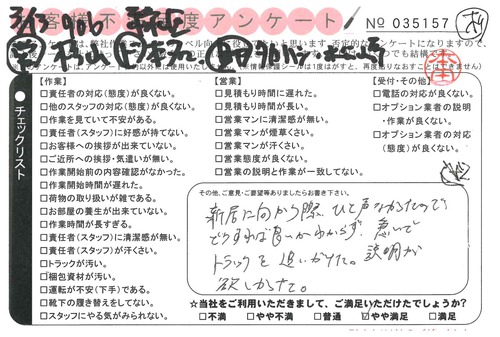 お客様不満足度アンケート
No 035157
チェックリスト
【作業】
□責任者の対応(態度)が良くない。
□他のスタッフの対応(態度)が良くない。
□作業を見ていて不安がある。
□責任者(スタッフ)に好感が持てない。
□お客様への挨拶が出来ていない。
□ご近所への挨拶・気遣いが無い。
□作業開始前の内容確認がなかった。
□作業開始時間が遅れた。
□荷物の取り扱いが雑である。
□お部屋の養生が出来ていない。
□作業時間が長すぎる。
□責任者(スタッフ)に清潔感が無い。
□責任者(スタッフ)が汗くさい。
□トラックが汚い。
□梱包資材が汚い。
□運転が不安(下手)である。
□靴下の履き替えをしてない。
□スタッフにやる気がみられない。
【営業】
□見積もり時間に遅れた。
□見積もり時間が長い。
□営業マンに清潔感が無い。
□営業マンが煙草くさい。
□営業マンが汗くさい。
□営業態度が良くない。
□営業の説明と作業が一致してない。
【受付・その他】
□電話の対応が良くない。
□オプション業者の説明
・作業が良くない。
□オプション業者の対応
(態度)が良くない。
その他、ご意見・ご要望等ありましたらお書き下さい。
新居に向かう際、ひと声なかったので、
どうすれば良いかわからず、急いで
トラックを追いかけた。説明が
欲しかった。
☆当社をご利用いただきまして、ご満足いただけたでしょうか?
□不満 □やや不満 □普通 ☑やや満足 □満足